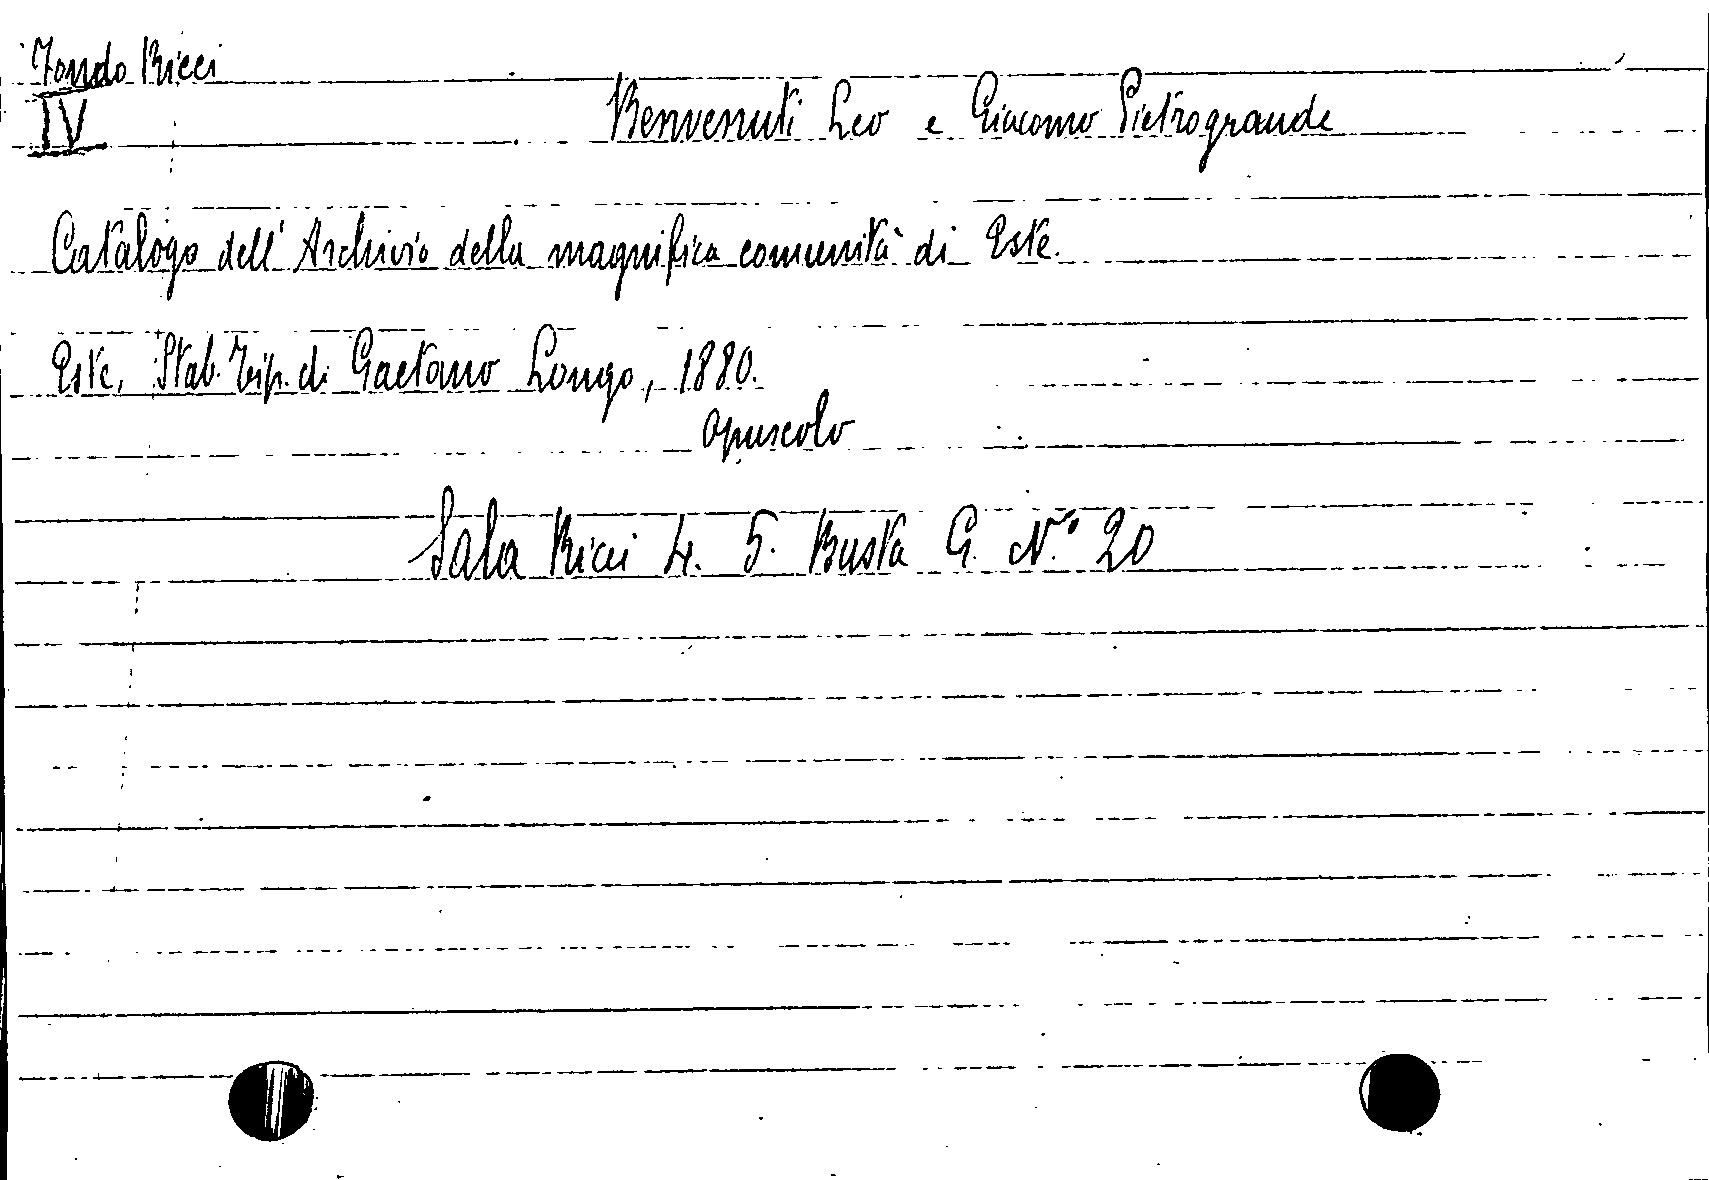 Fondo Ricci
IV
Benvenuti Leo e Giacomo Pietrogrande
Catalogo dell' Archivio della magnifica comunità di Este.
Este, Stab. Tip. di Gaetano Longo, 1880.
opuscolo
Sala Ricci 4. 5. Busta G. N.° 20